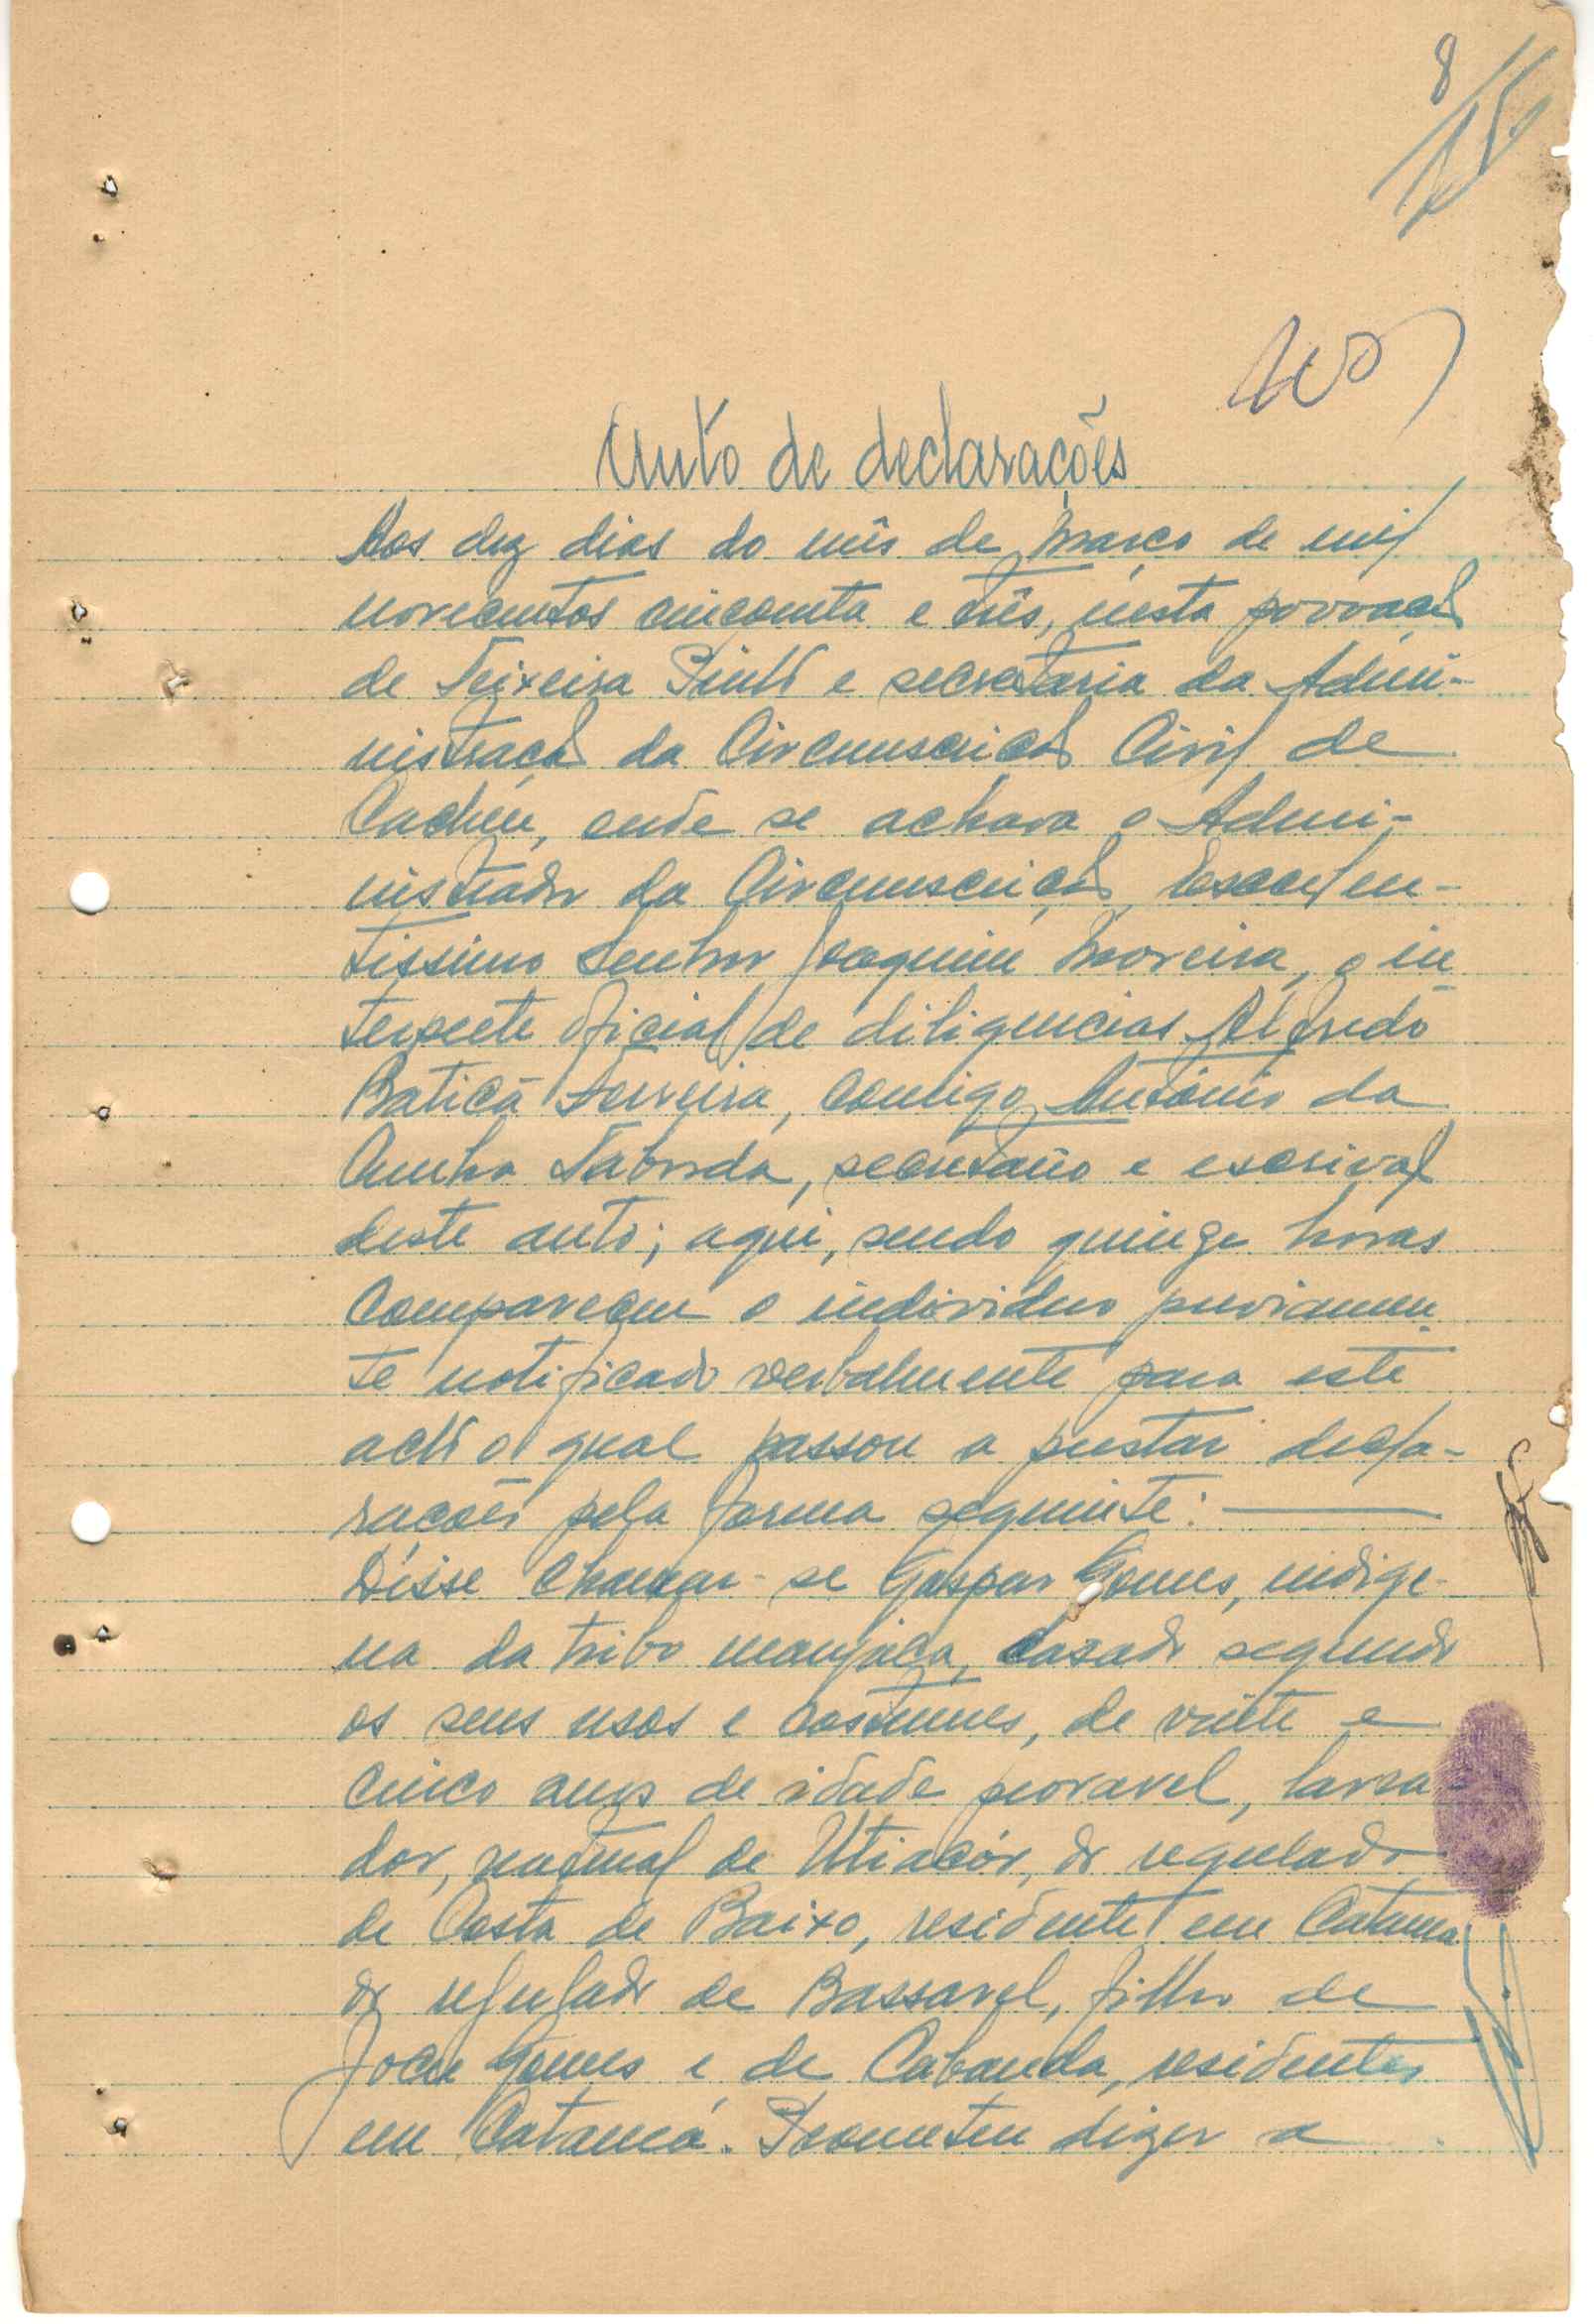 8
15
Auto de declarações
Aos dez dias do mês de Março de mil
novecentos cincoenta e três, nesta povoação
de Teixeira Pinto e secretaria da Admi-
nistração da Circunscrição Civil de
Cacheu, onde se achava o Admi-
nistrador da Circunscrição, Excelen-
tissimo Senhor Joaquim Moreira, o in-
terprete oficial de diligencias Alfredo
Baticã Ferreira, comigo António da
Cunha Taborda, secretário e escrivão
deste auto; aqui, sendo quinze horas
compareceu o individuo previamen-
te notificado verbalmente para este
acto o qual passou a prestar decla-
rações pela forma seguinte:
Disse chamar-se Gaspar Gomes, indige-
na da tribo manjaca, casado segundo
os seus usos e costumes, de vinte e
cinco anos de idade provavel, lavra-
dor, natural de Utiacór, do regulado
de Costa de Baixo, residente em Catama
do regulado de Bassarel, filho de
Gomes e de Cabanda, residentes
em Catamá. Prometeu dizer a